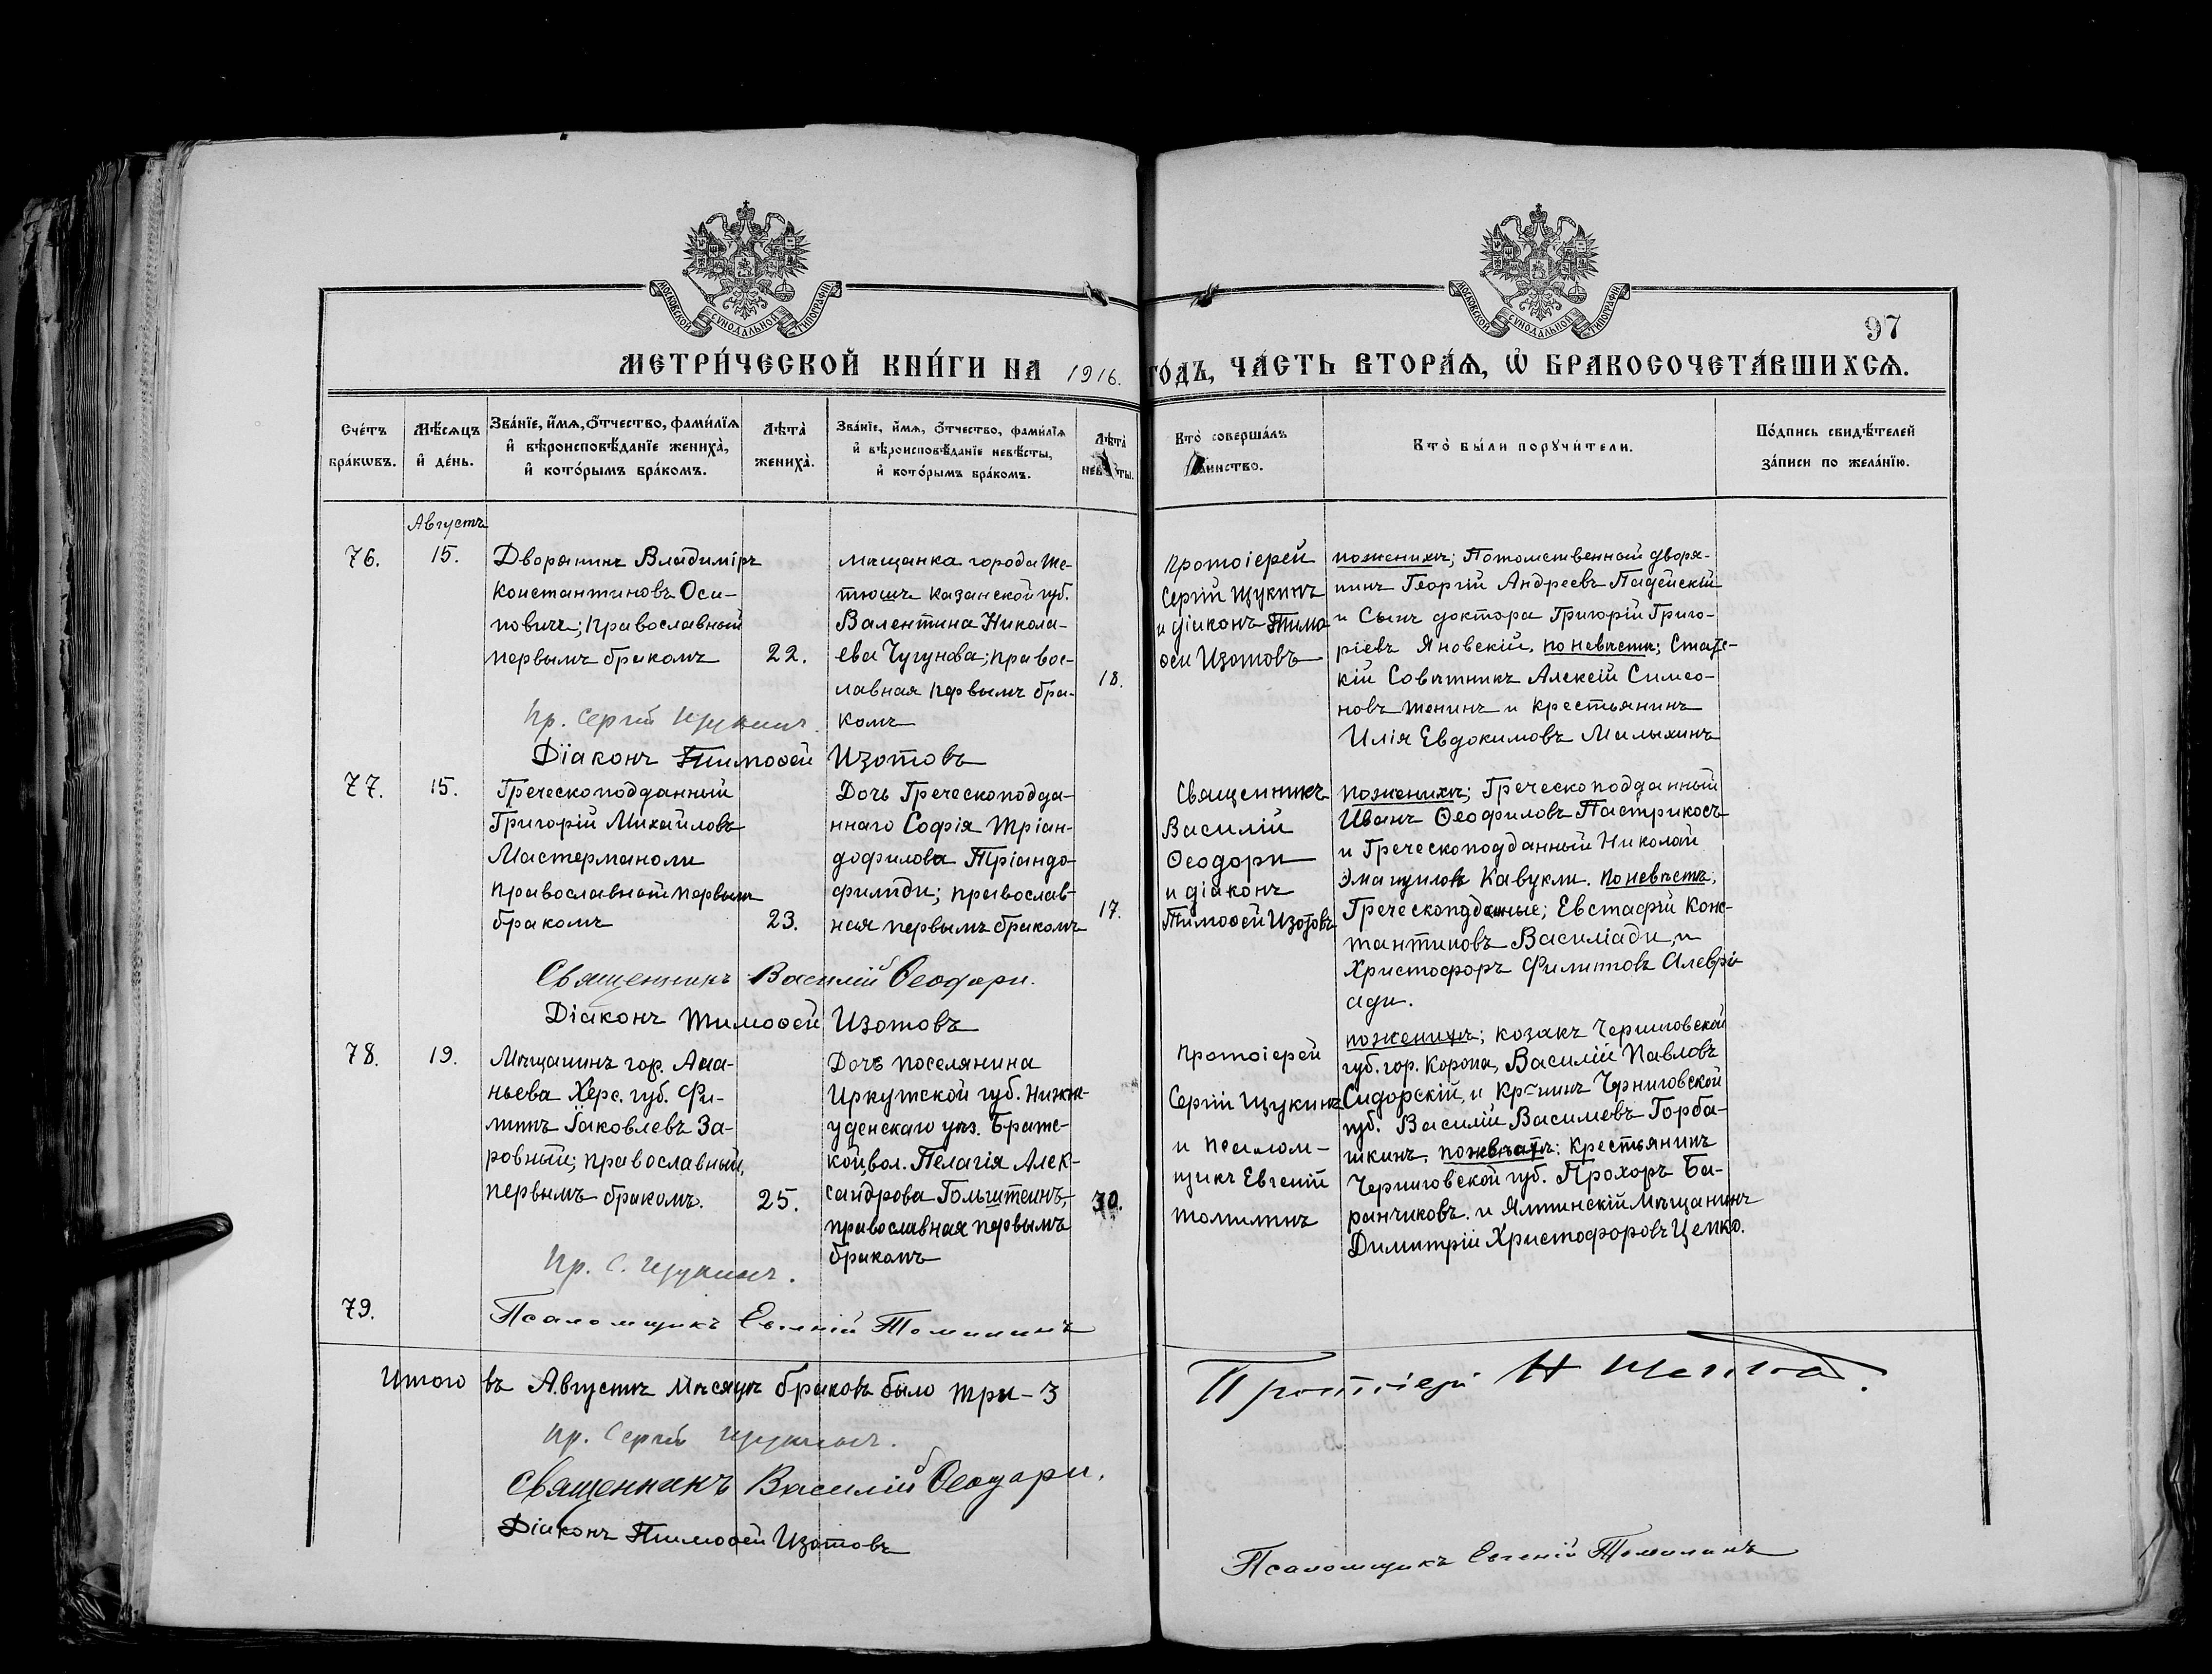 МОСКОВСКОЙ СѴНОДАЛЬНОЙ ТИПОГРАФІИ
МОСКОВСКОЙ СѴНОДАЛЬНОЙ ТИПОГРАФІИ
97
МЕТРИ́ЧЕСКОЙ КНИ́ГИ НА 1916. ГО́ДЪ, ЧА́СТЬ ВТОРА́Ѧ, Ѡ҆ БРАКОСОЧЕТА́ВШИХСѦ.
Сче́тъ бра́кѡвъ.
Мѣ́сѧцъ и҆ де́нь.
Зва́нїе, и҆́мѧ, ѻ҆́тчество, фами́лїѧ
и҆ вѣроисповѣ́данїе жениха̀,
и҆ кото́рымъ бра́комъ.
Лѣта̀ жениха̀.
Зва́нїе, и҆́мѧ, ѻ҆́тчество, фами́лїѧ
и҆ вѣроисповѣ́данїе невѣ́сты,
и҆ кото́рымъ бра́комъ.
Лѣта̀ нев ты.
Кто̀ соверша́лъ
аинство.
Кто̀ бы́ли порꙋчи́тели.
По́дпись свидѣ́телей
за́писи по жела́нїю.
Августъ
76.
15.
Дворянинъ Владиміръ
Константиновъ Оси-
повичъ; православный
первымъ бракомъ
22.
мѣщанка города Те-
тюшъ Казанской губ.
Валентина Никола-
ева Чугунова; правос-
лавная первымъ бра-
комъ
18.
Протоіерей
Сергій Щукинъ
и діаконъ Тимо
ѳей Изотовъ
по женихѣ; Потомственный дворя-
нинъ Георгій Андреевъ Падейскій
и Сынъ доктора Григорій Григо-
ріевъ Яновскій. по невѣстѣ; Статс-
кій Совѣтникъ Алексій Симео-
новъ Тенинъ и крестьянинъ
Илія Евдокимовъ Малыхинъ
Пр. Сергій Щукинъ.
Діаконъ Тимоѳей Изотовъ
77.
15.
Греческоподданный
Григорій Михайловъ
Мастерманоли
православной первымъ
бракомъ
23.
Дочь Греческоподда-
ннаго Софія Тріан-
дофилова Тріандо-
филиди; православ-
ная первымъ бракомъ
17.
Священникъ
Василій
Ѳеодори
и діаконъ
Тимоѳей Изотовъ
по женихѣ; Греческоподданный
Иванъ Ѳеофиловъ Пастрикосъ
и Греческоподданный Николай
Эмануиловъ Кавукли. по невѣстѣ;
Греческопод̾данные; Евстафій Конс-
тантиновъ Василіади, и
Христофоръ Филиповъ Алеврі-
ади.
Священникъ Василій Ѳеодори.
Діаконъ Тимоѳей Изотовъ
78.
19.
Мѣщанинъ гор. Ана-
ньева Херс. губ. Фи-
липъ Іаковлевъ За-
ровный; православный,
первымъ бракомъ.
25.
Дочь поселянина
Иркутской губ. Нижне-
удинскаго уѣз. Братс-
кой, вол. Пелагія Алек-
сандрова Гольштеинъ,
православная первымъ
бракомъ
30.
Протоіерей
Сергій Щукинъ
и псалом-
щикъ Евгеній
Томилинъ
по женихѣ; козакъ Черниговской
губ. гор. Коропа, Василій Павловъ
Сидорскій, и Кр-нинъ Черниговской
губ. Василій Василіевъ Горба-
шкинъ. по невѣстѣ: Крестьянинъ
Черниговской губ. Прохоръ Ба-
ранчиковъ. и Ялтинскій Мѣщанинъ
Димитрій Христофоровъ Цемко.
Пр. С. Щукинъ.
79.
Псаломщикъ Евгеній Томилинъ
Итого въ Августѣ мѣсяцѣ браковъ было три-3
Протоіерей Н
Пр. Сергій Щукинъ.
Священникъ Василій Ѳеодори.
Діаконъ Тимоѳей Изотовъ
Псаломщикъ Евгеній Томилинъ